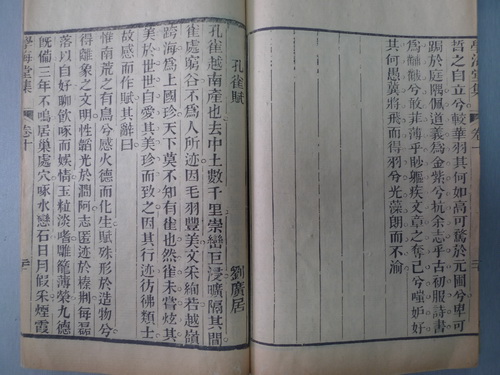 學海堂集
卷十
哲之自立兮較華羽其何如高可騖於元圃兮卑可
跼於庭隅佩道義為金紫兮抗余志乎古初服詩書
為黼黻兮敝菲薄乎財軀疾文章之奪己兮嗤妒好
其何愚將飛而得羽兮光藻朗而不渝
孔雀賦
劉廣居
孔雀越南產也去中土數千里崇巒巨浸曠隔其間
雀處窮谷不為人所迹因毛羽豐美文采絢若越嶺
跨海為上國珍天下莫不知有雀也然雀未嘗炫其
美於世世自愛其美珍而致之因其行迹彷彿類士
故感而作賦其辭曰
惟南荒之有鳥兮感火德而化生賦殊形於造物兮
得離象之文明性韜光於澗阿志匿迹於榛荆每磊
落以自好聊飲啄而娛情玉粒淡嗜雕籠薄榮九德
既備三年不鳴居巢處穴啄水戀石日月假采煙霞
學海堂集
卷十